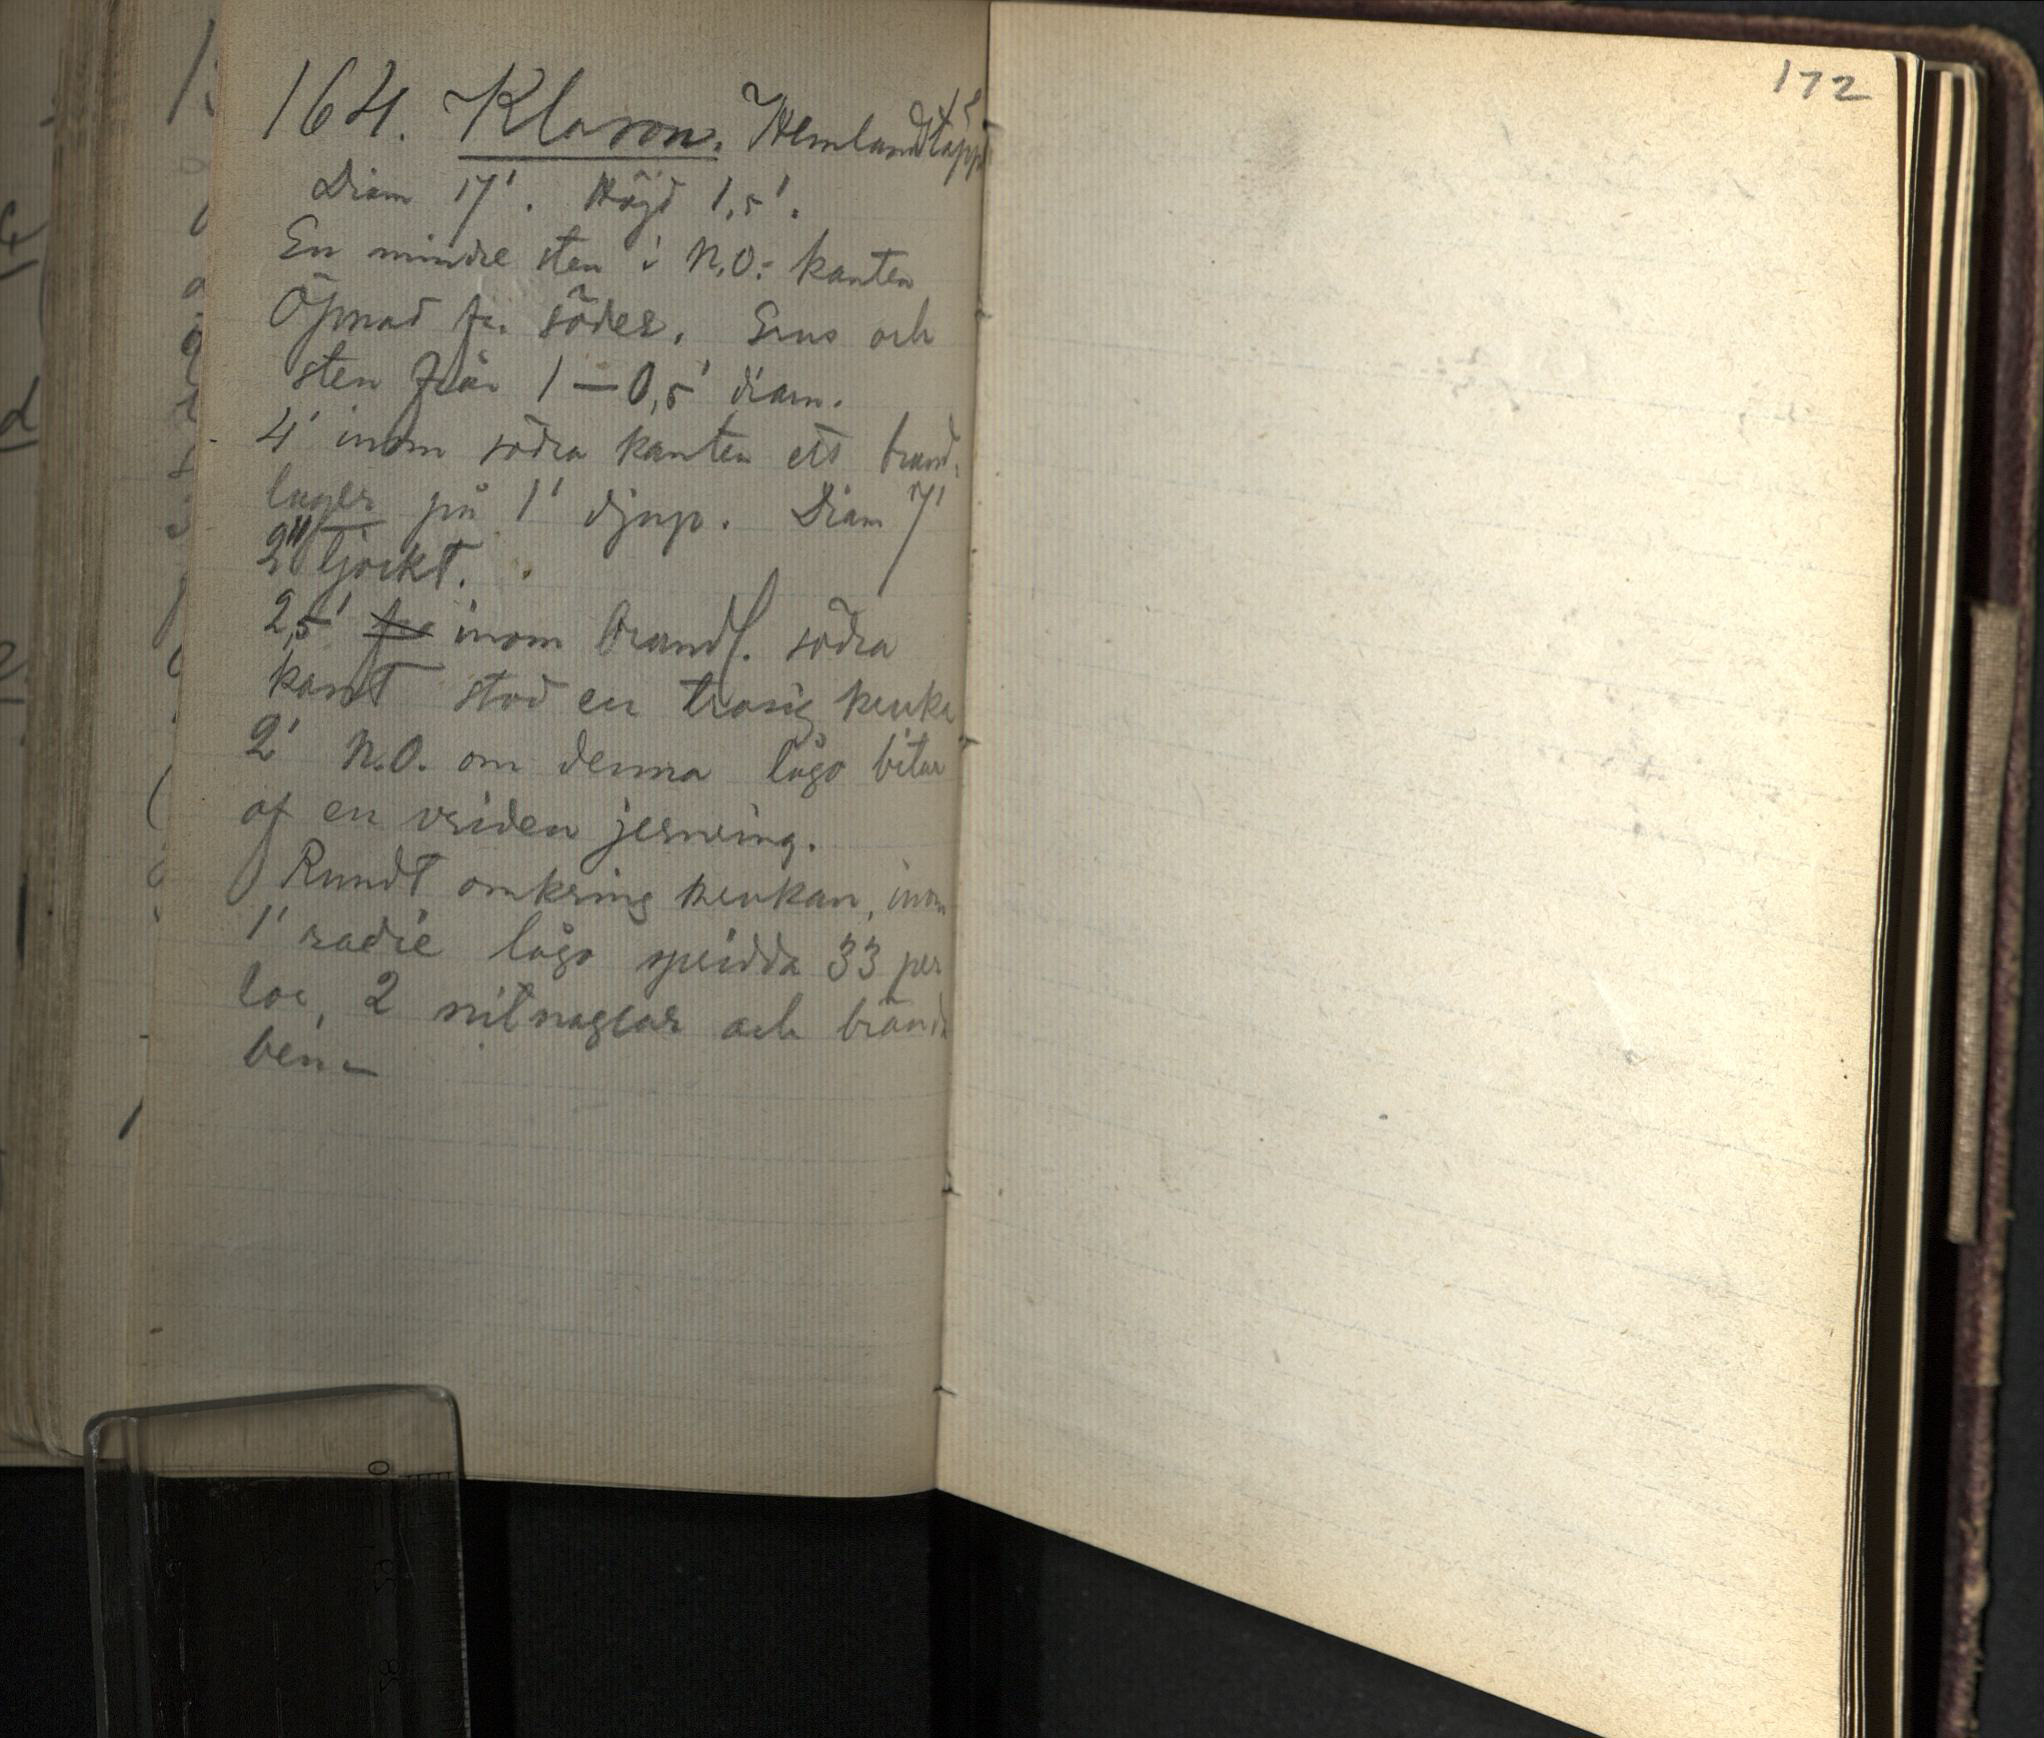 164. Klason. Hemlandstäpp
Diam 17'. Höjd 1,5'.
En mindre sten i N.O.: kanten
Öpnad fr. söder. Grus och
sten från 1 — 0,5' diam.
4' inom södra kanten ett brand-
lager på 1' djup. Diam 7'
2" tjockt.
2,5' inom brandl. södra
kant stod en trasig kruka
2' N.O. om denna lågo bitar
af en vriden jernring.
Rundt omkring krukan, inom
1' radie lågo spridda 33 per
lor, 2 nitnaglar och brända
ben
172